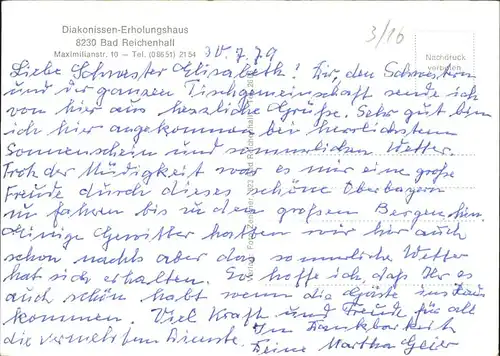 Diakonissen-Erholungshaus
8230 Bad Reichenhall
Maximilianstr. 10 – Tel. (08651) 2154
30.7.79
3/16
Nachdruck
verboten
Liebe Schwester Elisabeth! Dir, den Schwestern
und der ganzen Tischgemeinschaft sende ich
von hier aus herzliche Grüße. Sehr gut bin
ich hier angekommen bei herrlichstem
Sonnenschein und sommerlichem Wetter.
Trotz der Müdigkeit war es mir eine große
Freude durch dieses schöne Oberbayern
zu fahren bis zu den großen Bergen hin.
Einige Gewitter hatten wir hier auch
schon nachts aber das sommerliche Wetter
hat sich erhalten. So hoffe ich, daß Ihr es
auch schön habt wenn die Gäste ins Haus
kommen. Viel Kraft und Freude für all
die vermehrten Dienste. In Dankbarkeit
Deine Martha Geier